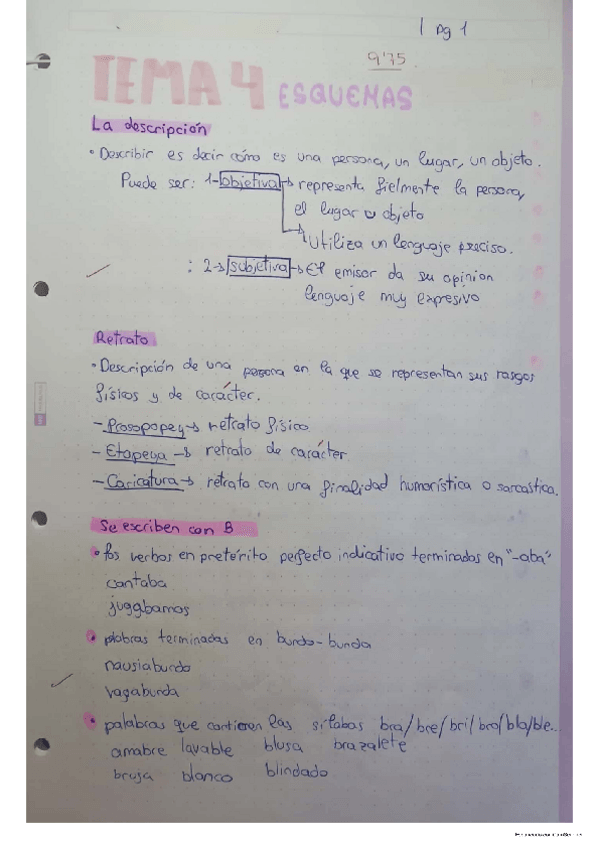 1 pg 1
9'75
TEMA 4 ESQUEMAS
La descripción
• Describir es decir cómo es una persona, un lugar, un objeto.
Puede ser: 1→ objetiva → representa fielmente la persona,
el lugar u objeto
→ Utiliza un lenguaje preciso.
: 2→ subjetiva → El emisor da su opinion
lenguaje muy expresivo
Retrato
• Descripción de una persona en la que se representan sus rasgos
físicos y de carácter.
- Prosopopey → retrato físico
- Etopeya → retrato de carácter
- Caricatura → retrato con una finalidad humorística o sarcástica.
Se escriben con B
• los verbos en pretérito perfecto indicativo terminados en "-aba"
cantaba
jugabamos
• plabras terminadas en bundo-bunda
nausiabundo
vagabunda
• palabras que contienen las sílabas bra/bre/bri/bro/bla/ble...
amabre lavable blusa brazalete
bruja blanco blindado